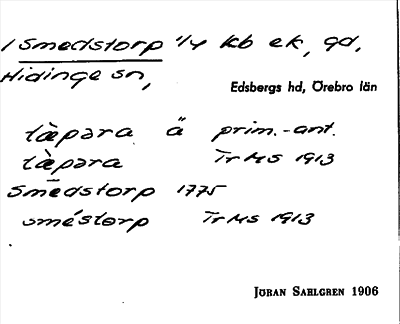 1 Smedstorp 1/4 kb ek, gd,
Hidinge sn,
Edsbergs hd, Örebro län
tæ̀pəra ä prim.-ant.
tæ̀pəra Tr MS 1913
Smedstorp 1775
sméstorp Tr MS 1913
JÖRAN SAHLGREN 1906